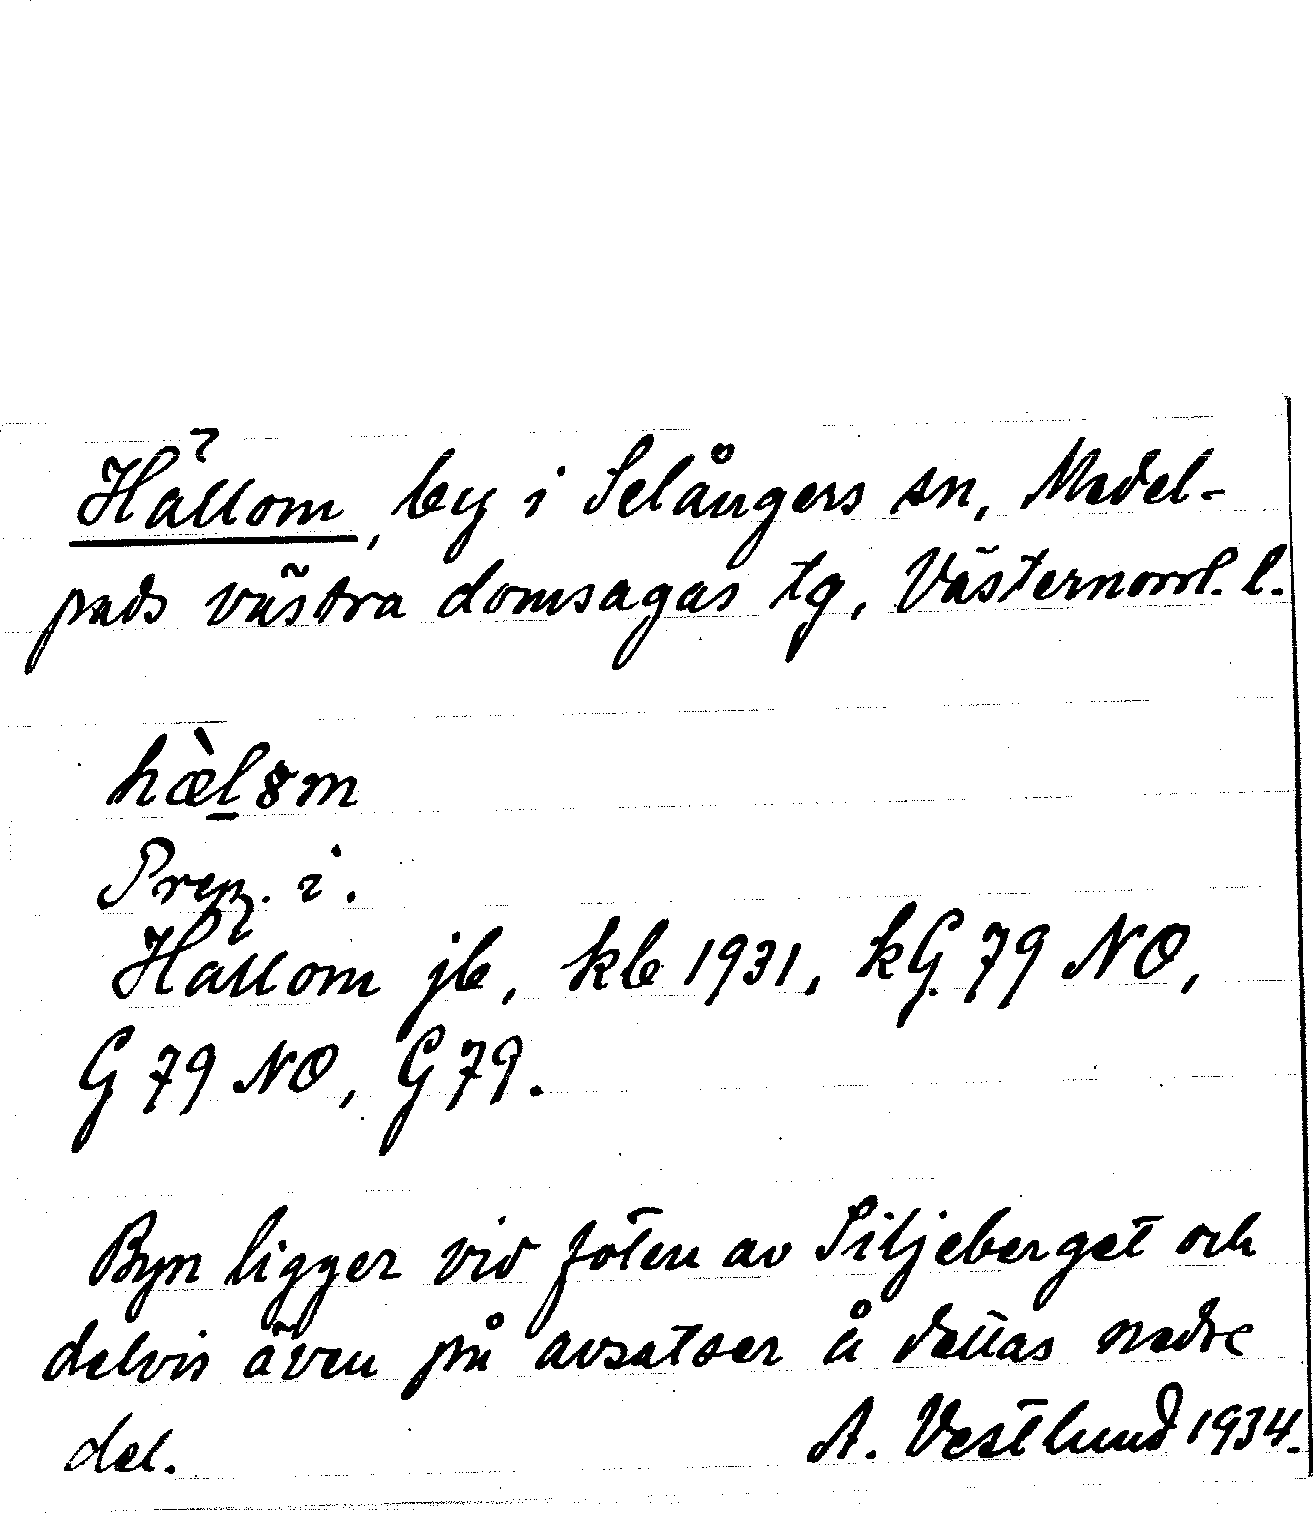 Hällom, by i Selångers sn, Medel-
pads västra domsagas tg, Västernorrl. l.
hæ̀l̲8m
Prep. i.
Hällom jb, kb 1931, kG 79 NO,
G 79 NO, G 79.
Byn ligger vid foten av Siljeberget och
delvis även på avsatser å dettas nedre
del. A. Vestlund 1934.